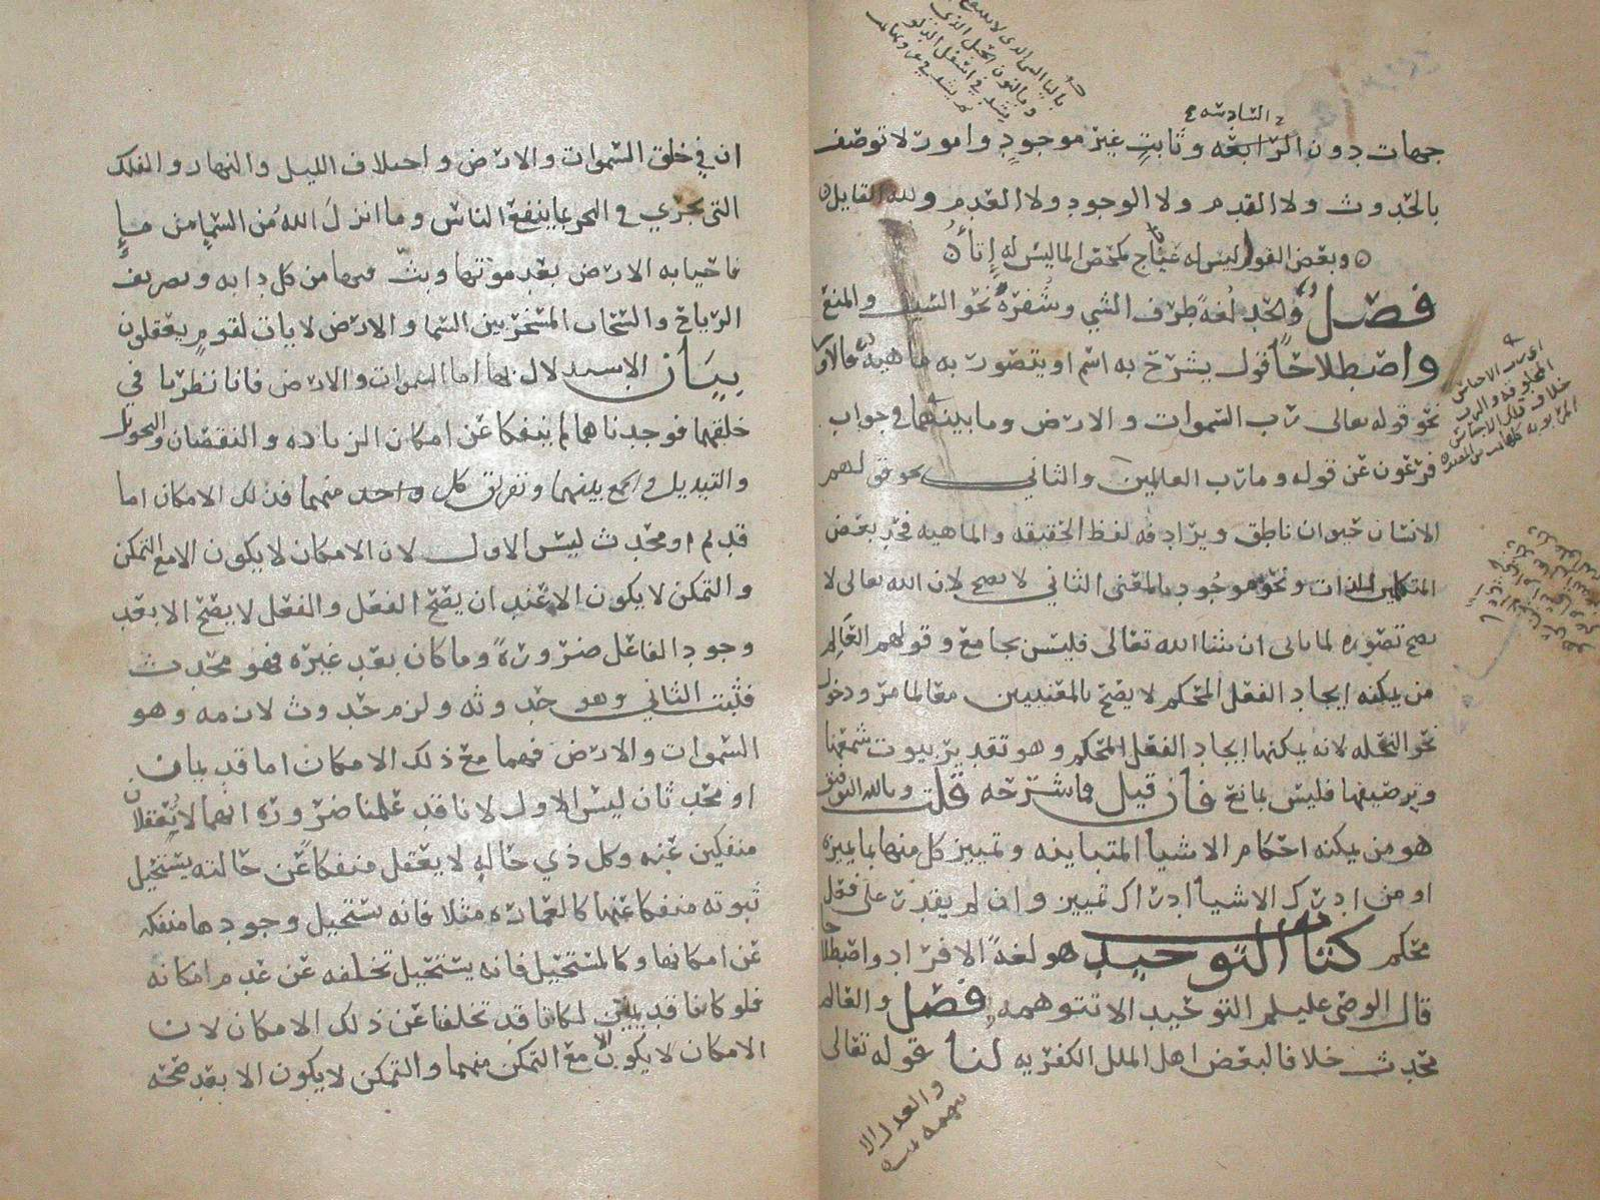 السادسة
جهات دون الرابعه وثابت غير موجود وامور لا توصف
بالحدوث ولا القدم ولا الوجود ولا العدم ولله القايل
وبعض القول ليس له عناج كمخض الما ليس له إتاء
فصل والحد لغة طرف الشي وشفرة نحو السيف والمنع
واصطلاحًا قول يشرح به اسم او يتصور به ماهية فالاول
نحو قوله تعالى رب السموات والارض وما بينهما في جواب
فرعون عن قوله وما رب العالمين والثاني نحو قولهم
الانسان حيوان ناطق ويرادفه لفظ الحقيقه والماهيه فحد بعض
المتكلمين للذات ونحو موجود بالمعنى الثاني لا يصح لان الله تعالى لا
يصح تصوره لما ياتى ان شا الله تعالى فليس بجامع وقولهم العالم
من يمكنه ايجاد الفعل المحكم لا يصح بالمعنيين معا لما مر ودخول
نحو النحله لانه يمكنها ايجاد الفعل المحكم وهو تقدير بيوت شمعها
وترصيفها فليس بمانع فان قيل فما شرحه قلت وبالله التوفيق
هو من يمكنه احكام الاشيا المتباينه وتمييز كل منها بما يميزه
او من ادرك الاشيا ادراك تمييز وان لم يقدر على فعل
محكم كتاب التوحيد هو لغة الافراد واصطلاحا
قال الوصي عليلم التوحيد الا تتوهمه فصل والعالم
محدث خلافا لبعض اهل الملل الكفريه لنا قوله تعالى
والعدل الا
تتهمه
ان في خلق السموات والارض واختلاف الليل والنهار والفلك
التي تجري في البحر بما ينفع الناس وما انزل الله من السما من ما
فاحيا به الارض بعد موتها وبث فيها من كل دابه وتصريف
الرياح والسحاب المسخر بين السما والارض لايات لقوم يعقلون
بيان الاستدلال بها اما السموات والارض فانا نظرنا في
خلقهما فوجدناهما لم ينفكا عن امكان الزياده والنقصان والتحويل
والتبديل والجمع بينهما وتفريق كل واحد منهما فذلك الامكان اما
قديم او محدث ليس الاول لان الامكان لا يكون الا مع التمكن
والتمكن لا يكون الا عند ان يصح الفعل والفعل لا يصح الا بعد
وجود الفاعل ضرورة وما كان بعد غيره فهو محدث
فثبت الثاني وهو حدوثه ولزم حدوث لازمه وهو
السموات والارض فهما مع ذلك الامكان اما قديمان
او محدثان ليس الاول لانا قد علمنا ضرورة انهما لا يعقلان
منفكين عنه وكل ذي حاله لا يعقل منفكا عن حالته يستحيل
ثبوته منفكا عنها كالعماره مثلا فانه يستحيل وجودها منفكه
عن امكانها وكالمستحيل فانه يستحيل تخلفه عن عدم امكانه
فلو كانا قديمين لكانا قد تخلفا عن ذلك الامكان لان
الامكان لا يكون الا مع التمكن منهما والتمكن لا يكون الا بعد صحة